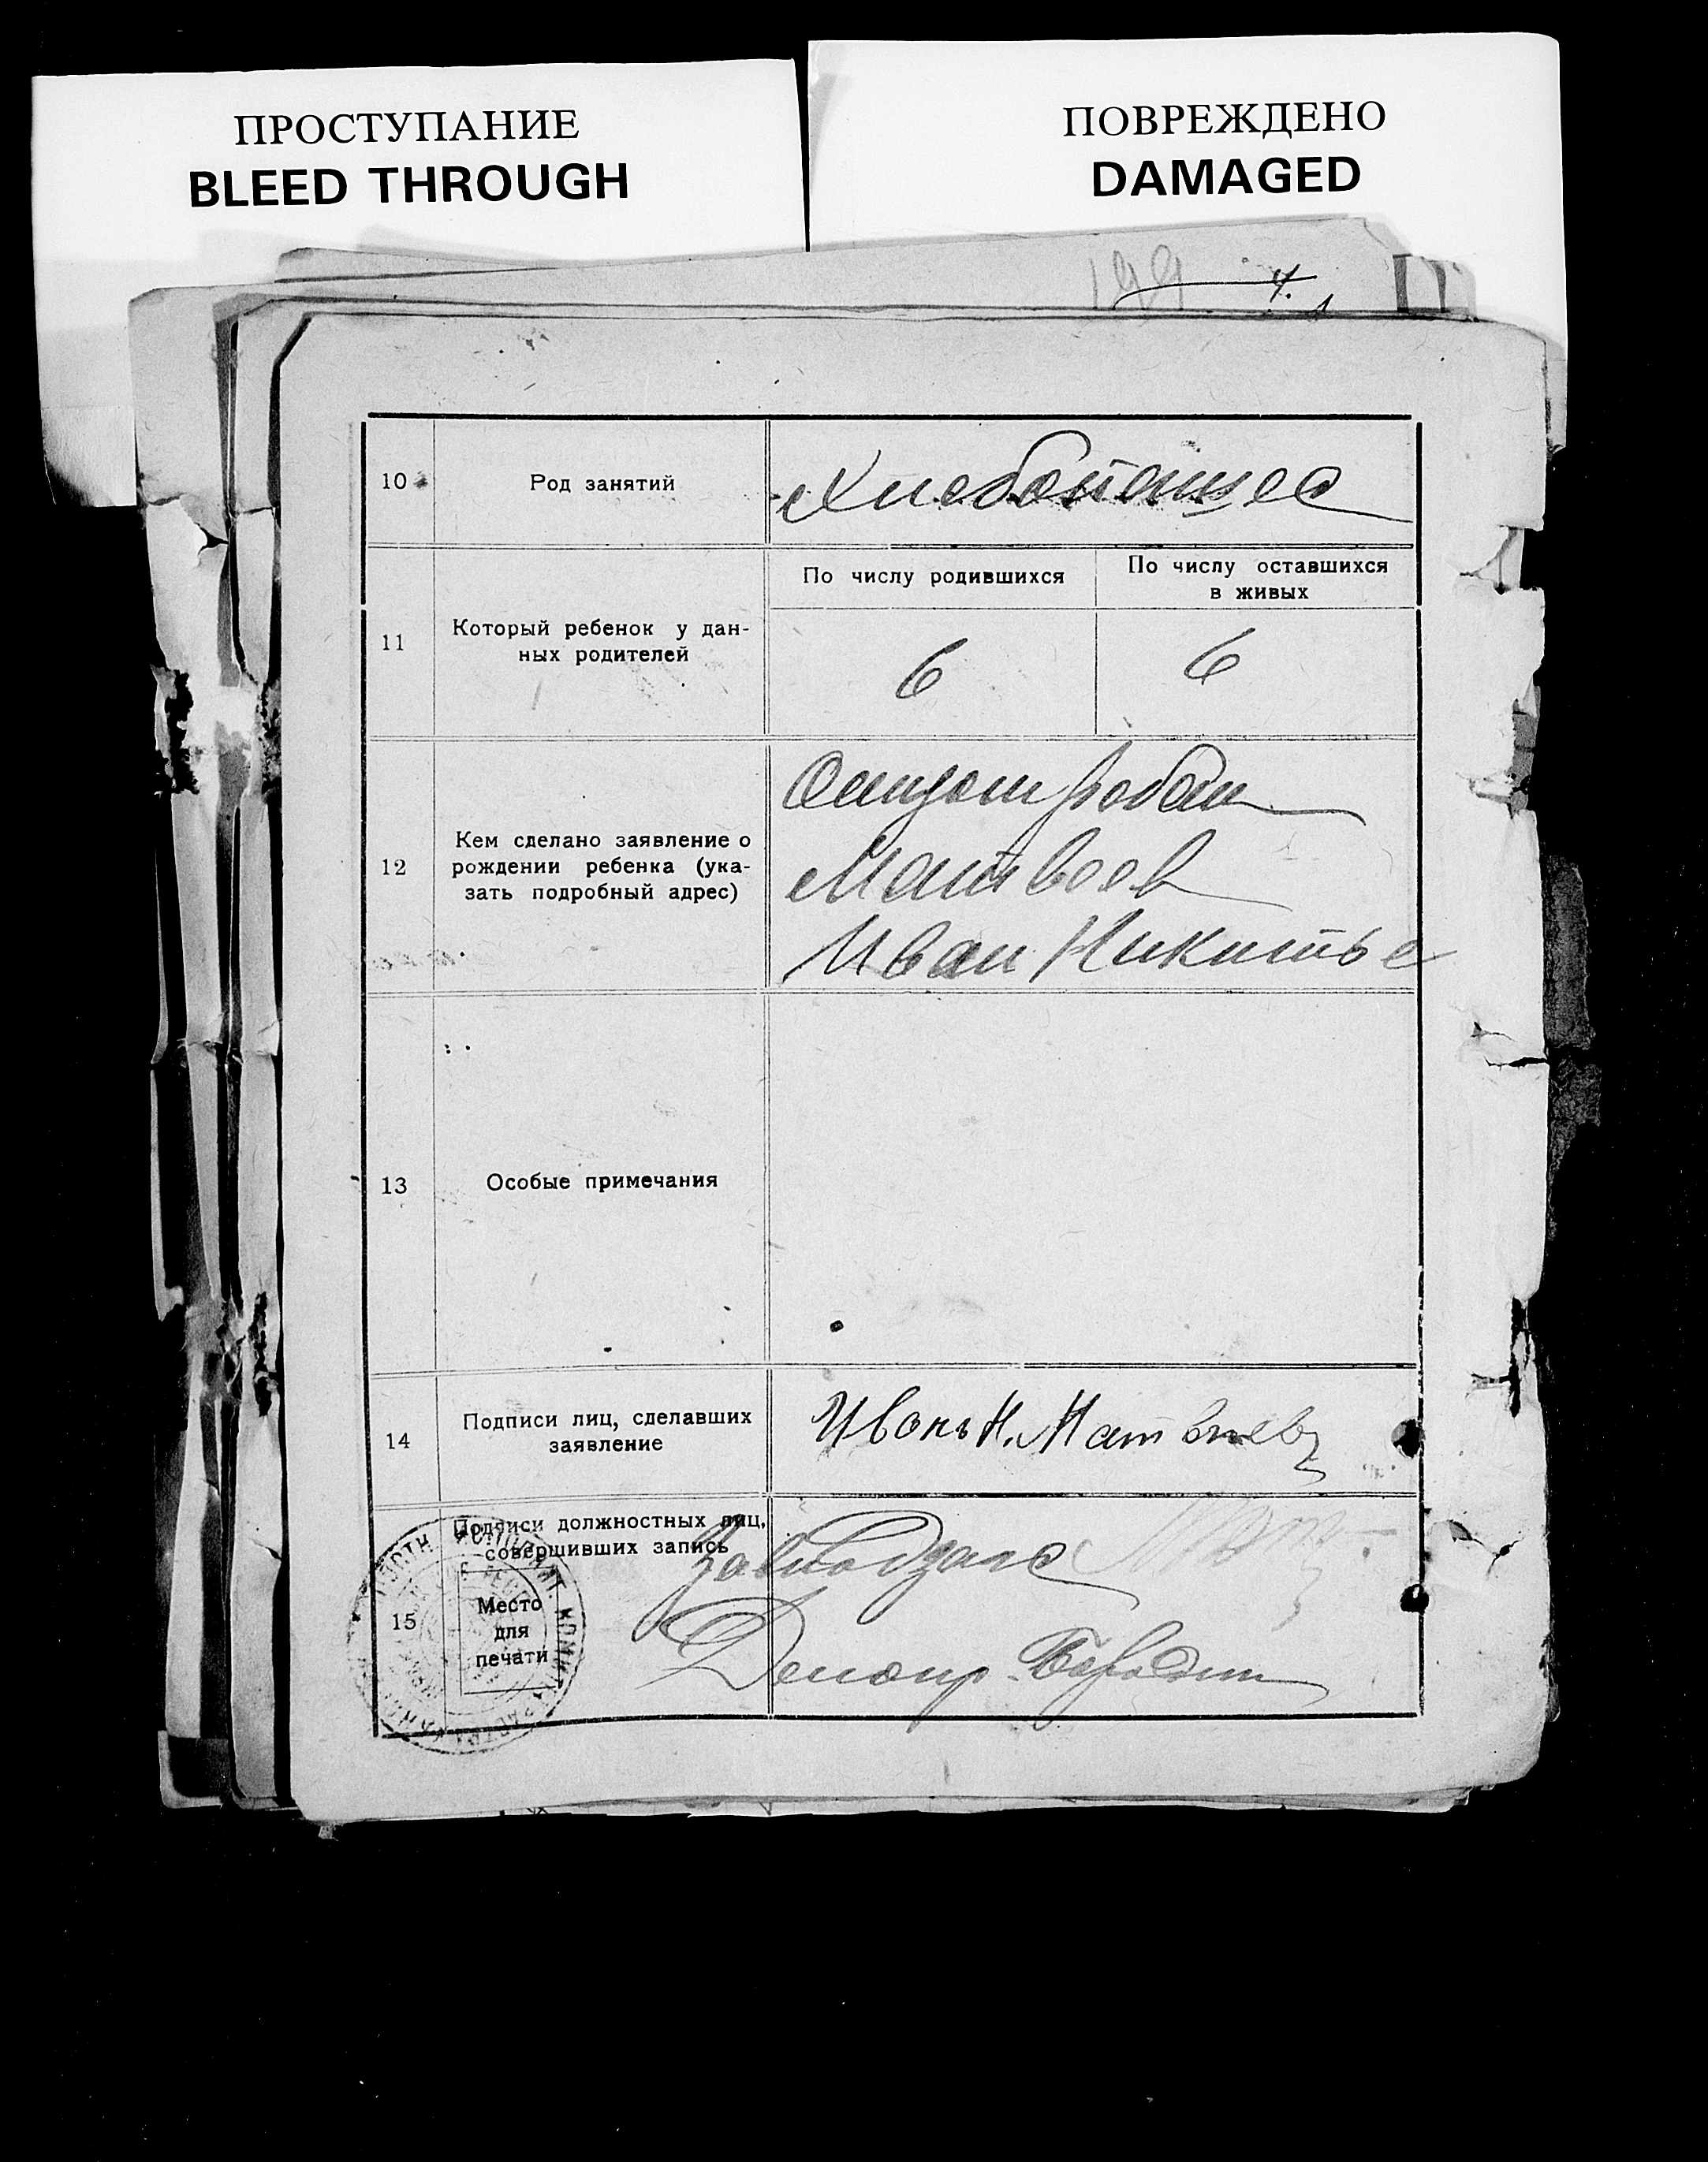 ПРОСТУПАНИЕ
BLEED THROUGH
ПОВРЕЖДЕНО
DAMAGED
199
4.
10
Род занятий
Хлебопашес
11
Который ребенок у дан-
ных родителей
По числу родившихся
По числу оставшихся
в живых
6
6
12
Кем сделано заявление о
рождении ребенка (ука-
зать подробный адрес)
Матвеев
Иван Никитье
13
Особые примечания
14
Подписи лиц, сделавших
заявление
Иванъ Н. Матвеевъ
15
Подписи должностных лиц,
совершивших запись
Место
для
печати
Делопр. Бородин